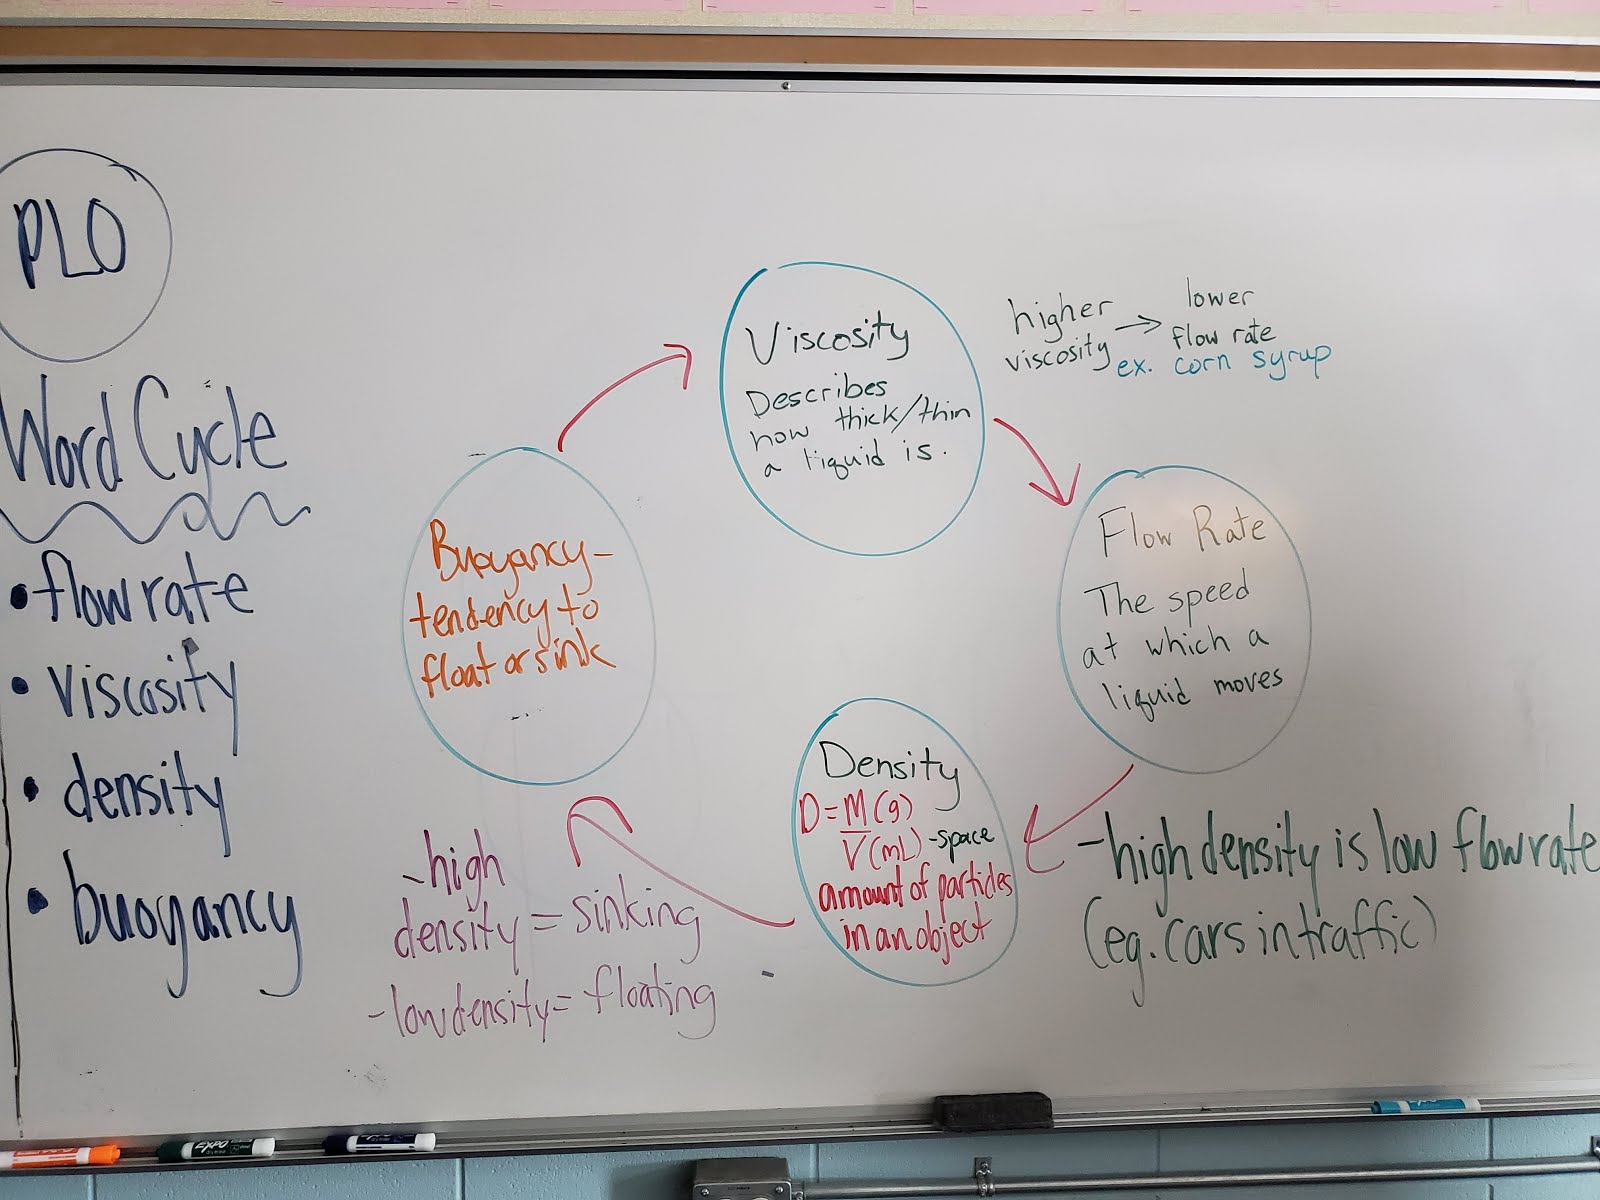 PLO
Word Cycle
• flow rate
• viscosity
• density
• buoyancy
Viscosity
Describes
how thick/thin
a liquid is.
higher
viscosity → lower
flow rate
ex. corn syrup
Flow Rate
The speed
at which a
liquid moves
- high density is low flow rate
(eg. cars in traffic)
Density
D = M (g)
V (mL) - space
amount of particles
in an object
- high
density = sinking
- low density = floating
Buoyancy -
tendency to
float or sink
EXPO